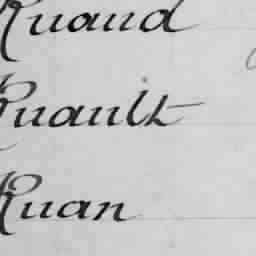 Ruaud
Ruault
Ruan